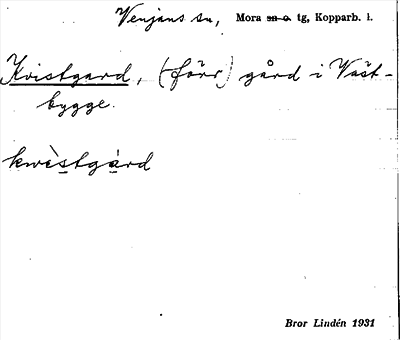 Venjans sn, Mora sn o. tg, Kopparb. l.
Kvistgard, (förr) gård i Väst-
bygge.
kwèstgàrd
Bror Lindén 1931